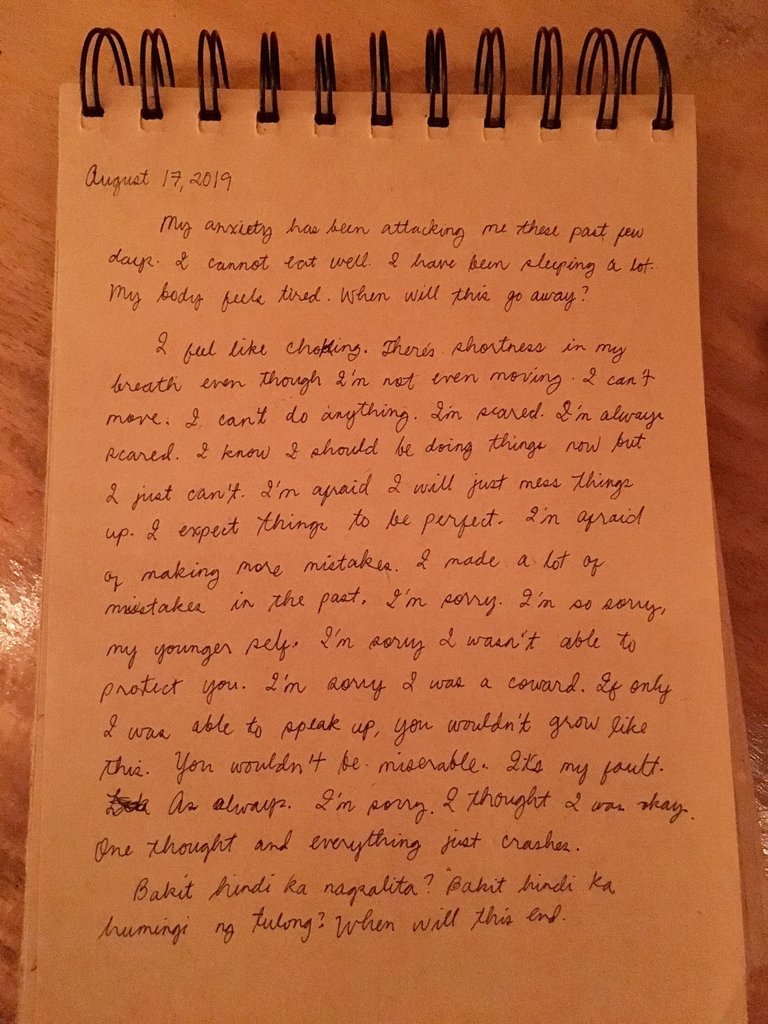 August 17, 2019
My anxiety has been attacking me these past few
days. I cannot eat well. I have been sleeping a lot.
My body feels tired. When will this go away?
I feel like choking. There's shortness in my
breath even though I'm not even moving. I can't
move. I can't do anything. I'm scared. I'm always
scared. I know I should be doing things now but
I just can't. I'm afraid I will just mess things
up. I expect things to be perfect. I'm afraid
of making more mistakes. I made a lot of
mistakes in the past. I'm sorry. I'm so sorry,
my younger self. I'm sorry I wasn't able to
protect you. I'm sorry I was a coward. If only
I was able to speak up, you wouldn't grow like
this. You wouldn't be miserable. It's my fault.
As always. I'm sorry. I thought I was okay.
One thought and everything just crashes.
Bakit hindi ka nagsalita? Bakit hindi ka
humingi ng tulong? When will this end.